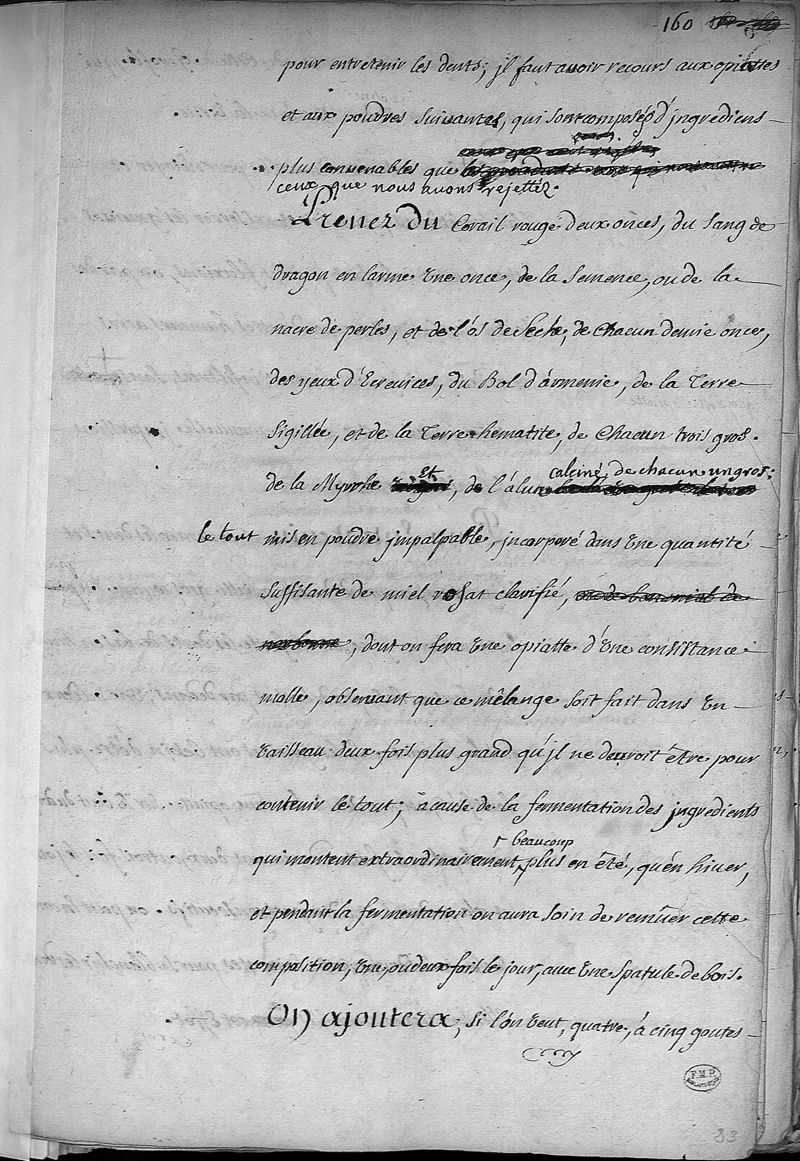 160
pour entretenir les dents; jl faut avoir recours aux opiattes
et aux poudres suivantes, qui sont composés d'jngrediens
plus convenables que
ceux que nous avons rejettez.
Prenez du Corail rouge deux onces, du sang de
dragon en larme une once, de la semence, ou de la
nacre de perles, et de l'ós de seche, de chacun demie once,
des yeux d'Ecrevices, du Bol d'armenie, de la Terre
sigillée, et de la Terre hematite, de chacun trois gros.
de la Myrrhe et, de l'alun calciné, de chacun un gros;
le tout mis en poudre jmpalpable, jncorporé dans une quantité
suffisante de miel rosat clarifié,
, dont on fera une opiatte d'une consistance
molle, observant que ce mêlange soit fait dans un
vaisseau deux fois plus grand qu'jl ne devroit être pour
contenir le tout; a cause de la fermentation des jngredients
qui montent extraordinairement, beaucoup plus en été, qu'en hiver,
et pendant la fermentation on aura soin de remüer cette
composition, une, ou deux fois le jour, avec une spatule de bois.
On ajoutera, si l'on veut, quatre, á cinq goutes
F.M.P.
83